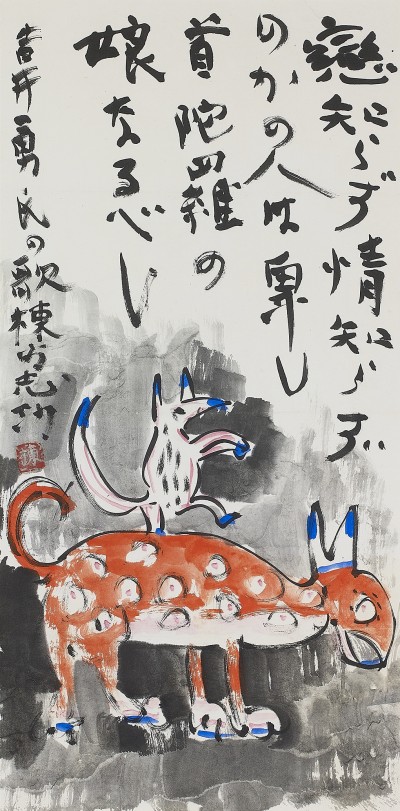 戀知らず情知らず
のかの人は卑し
首陀羅の
娘なるべし
吉井勇氏の歌棟方志功